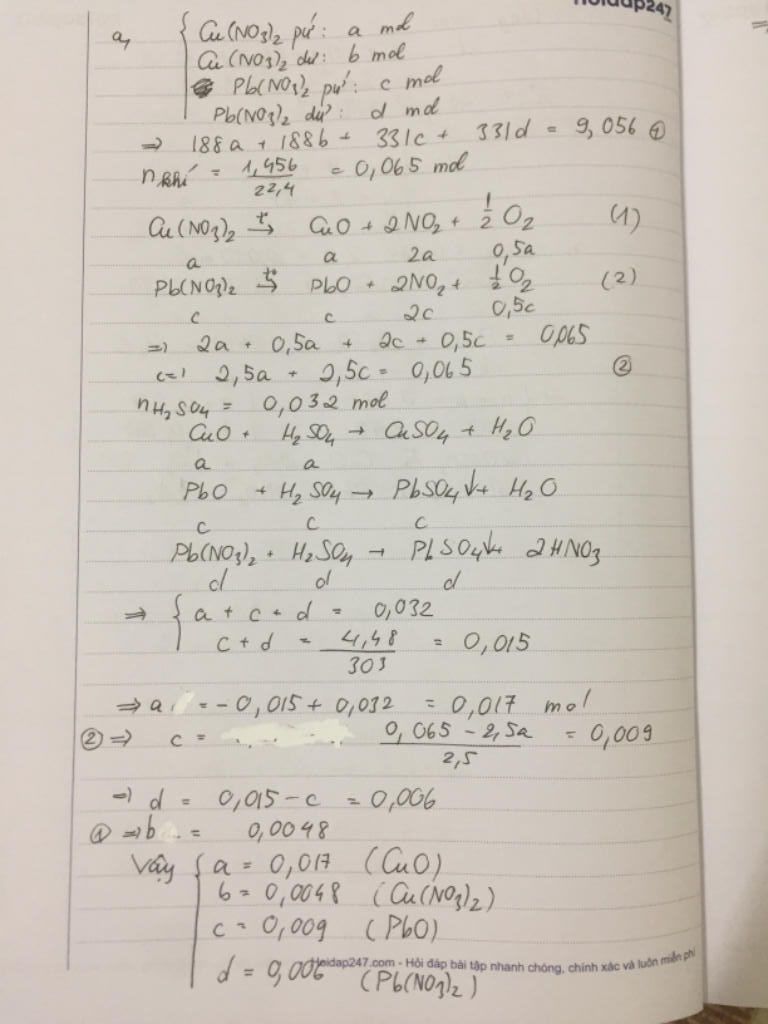 Hoidap247
a, { Cu(NO3)2 pứ: a mol
Cu(NO3)2 dư: b mol
Pb(NO3)2 pứ: c mol
Pb(NO3)2 dư: d mol
⇒ 188a + 188b + 331c + 331d = 9,056 ①
n khí = 1,456 / 22,4 = 0,065 mol
Cu(NO3)2 t°→ CuO + 2NO2 + 1/2 O2 (1)
a a 2a 0,5a
Pb(NO3)2 t°→ PbO + 2NO2 + 1/2 O2 (2)
c c 2c 0,5c
⇒ 2a + 0,5a + 2c + 0,5c = 0,065
⇔ 2,5a + 2,5c = 0,065 ②
nH2SO4 = 0,032 mol
CuO + H2SO4 → CuSO4 + H2O
a a
PbO + H2SO4 → PbSO4↓ + H2O
c c c
Pb(NO3)2 + H2SO4 → PbSO4↓ + 2HNO3
d d d
⇒ { a + c + d = 0,032
c + d = 4,48 / 303 = 0,015
⇒ a = -0,015 + 0,032 = 0,017 mol
② ⇒ c = 0,065 - 2,5a / 2,5 = 0,009
⇒ d = 0,015 - c = 0,006
① ⇒ b = 0,0048
Vậy { a = 0,017 (CuO)
b = 0,0048 (Cu(NO3)2)
c = 0,009 (PbO)
d = 0,006 (Pb(NO3)2)
Hoidap247.com - Hỏi đáp bài tập nhanh chóng, chính xác và luôn miễn phí